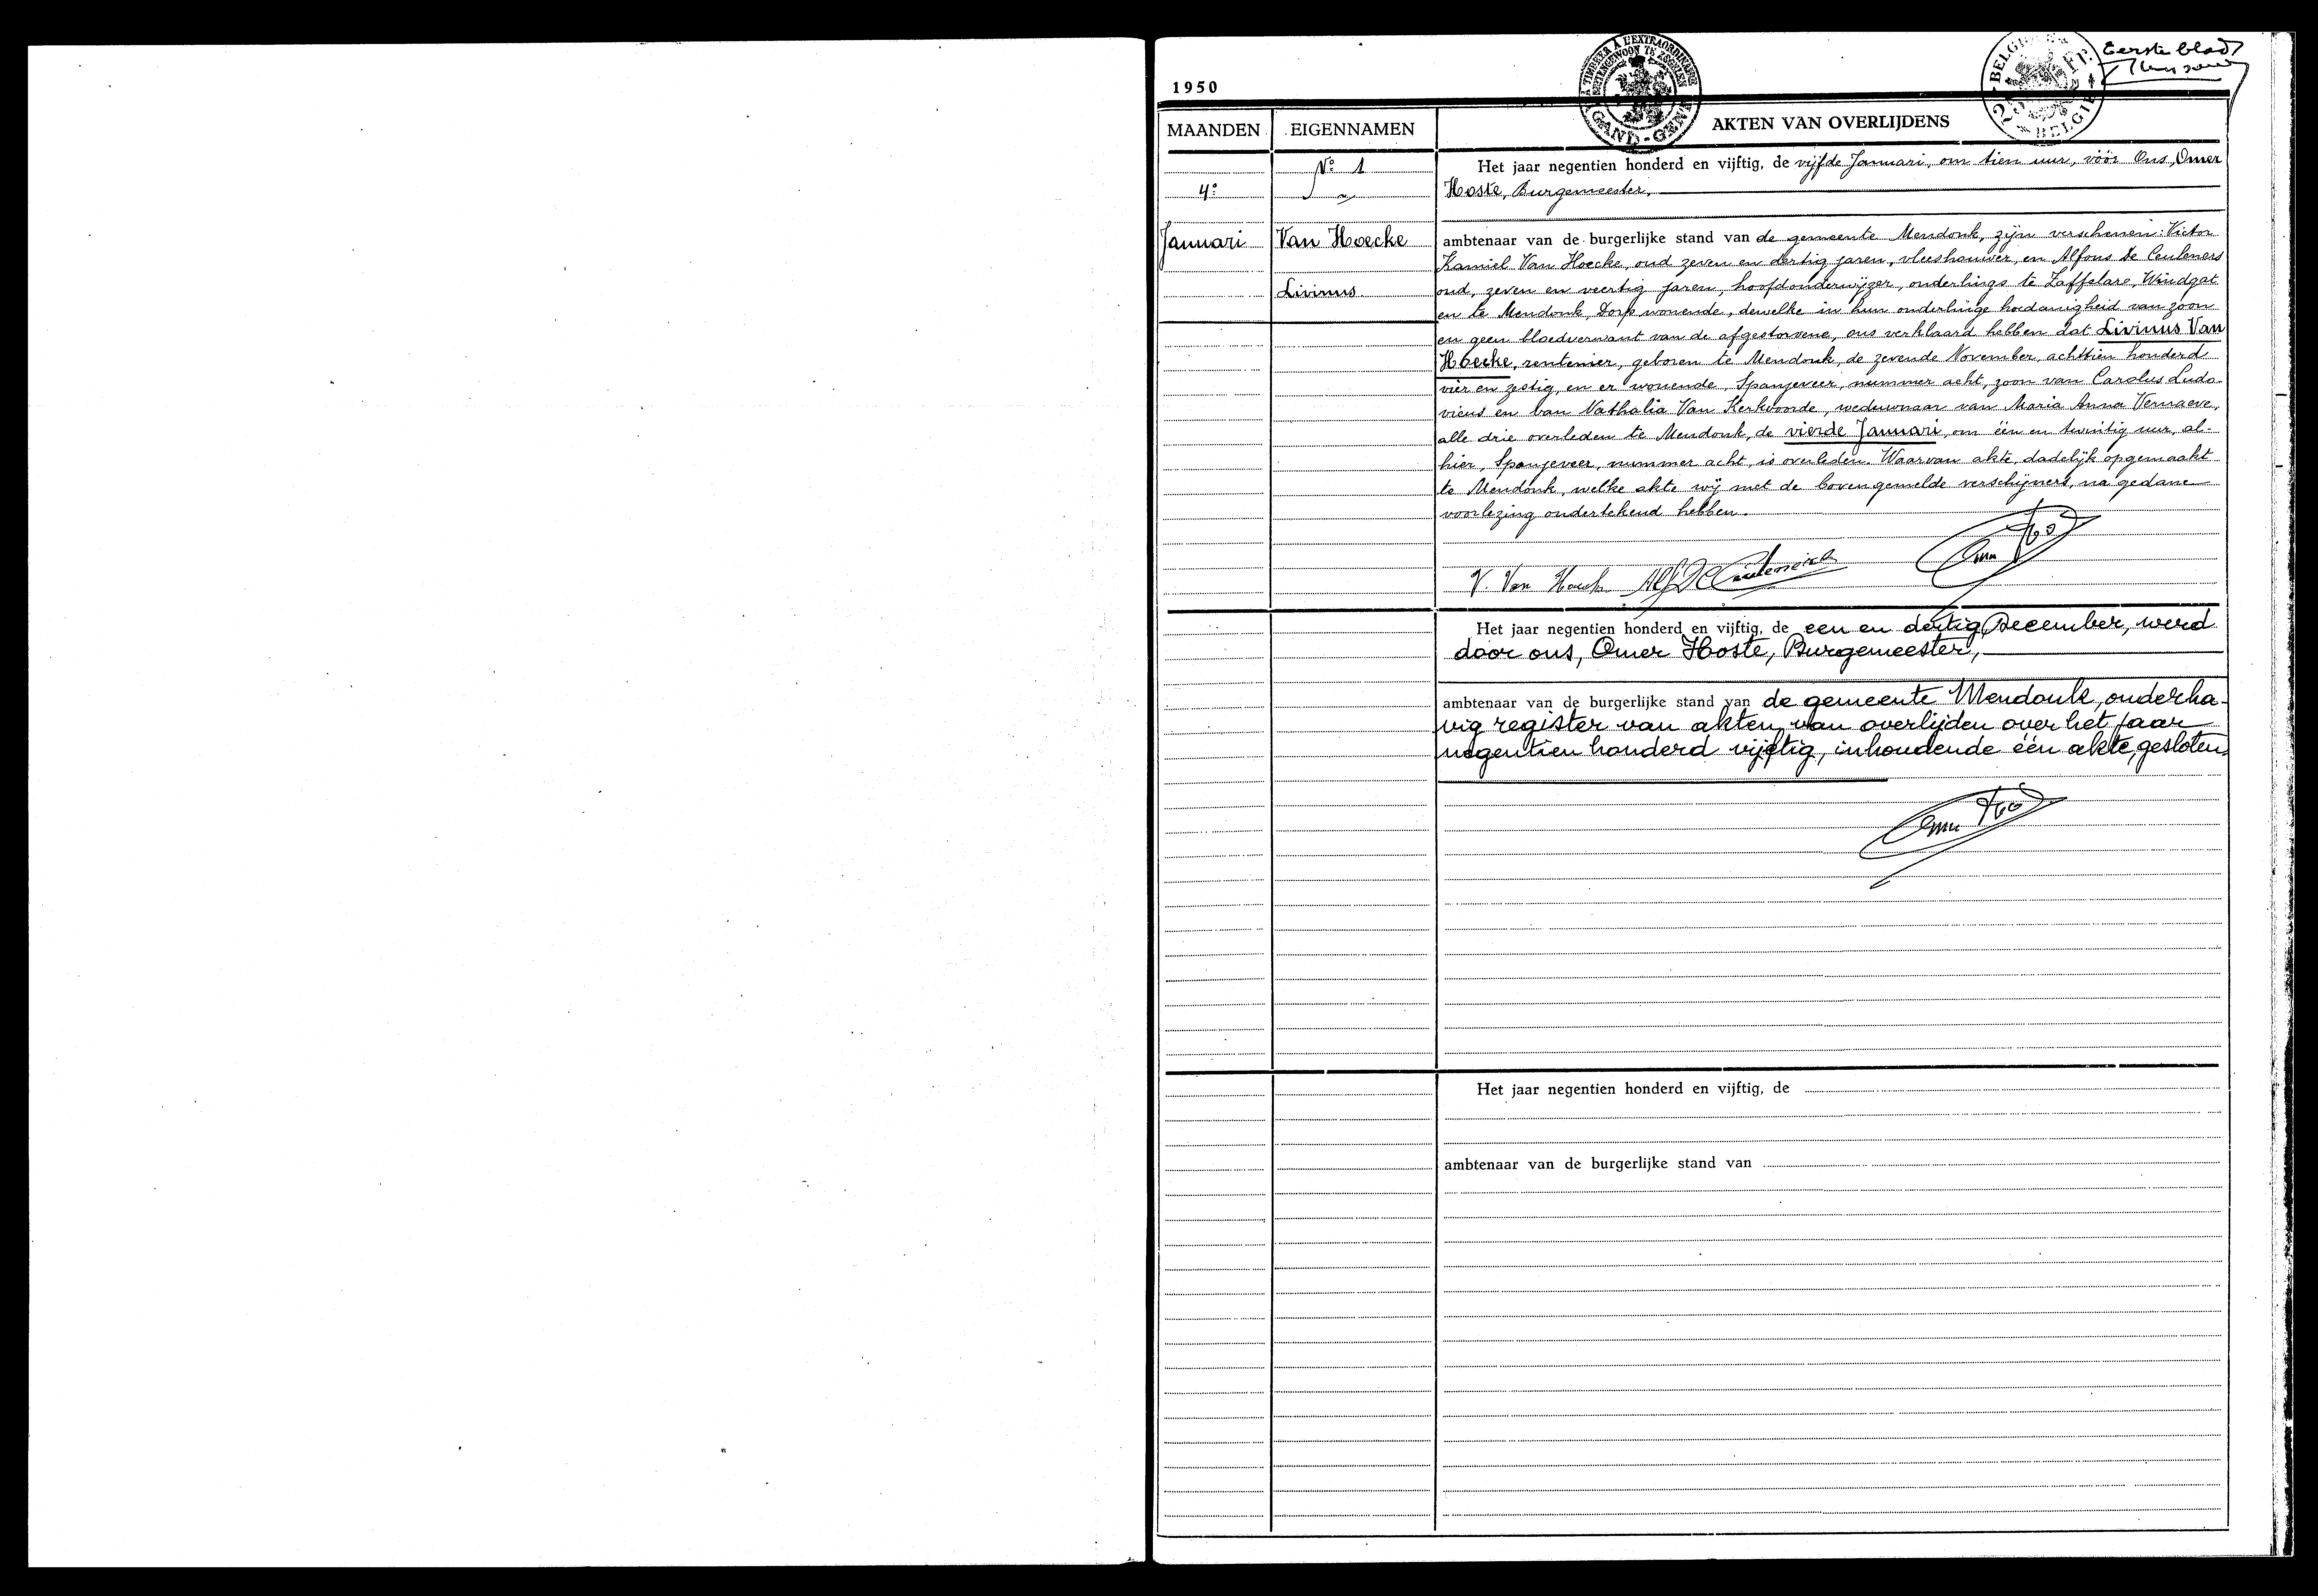 Eerste blad
1950
TIMBRER A L'EXTRAORDINAIRE
BUITENGEWOON TE ZEGELEN
GAND-GENT
BELGIE
MAANDEN EIGENNAMEN AKTEN VAN OVERLIJDENS
No 1
4e
Januari
Van Hoecke
Livinus
Het jaar negentien honderd en vijftig, de vijfde Januari, om tien uur, vóór Ons, Omer
Hoste, Burgemeester,
ambtenaar van de burgerlijke stand van de gemeente Mendonk, zijn verschenen: Victor
Kamiel Van Hoecke, oud zeven en dertig jaren, vleeshouwer, en Alfons De Ceuleners
oud, zeven en veertig jaren, hoofdonderwijzer, onderlings te Zaffelare, Windgat
en te Mendonk, Dorp wonende, dewelke in hun onderlinge hoedanigheid van zoon
en geen bloedverwant van de afgestorvene, ons verklaard hebben dat Livinus Van
Hoecke, rentenier, geboren te Mendonk, de zevende November, achttien honderd
vier en zestig, en er wonende, Spanjeveer, nummer acht, zoon van Carolus Ludo-
vicus en van Nathalia Van Kerkvoorde, weduwnaar van Maria Anna Vernaeve,
alle drie overleden te Mendonk, de vierde Januari, om één en twintig uur, al-
hier, Spanjeveer, nummer acht, is overleden. Waarvan akte, dadelijk opgemaakt
te Mendonk, welke akte wij met de bovengemelde verschijners, na gedane
voorlezing ondertekend hebben.
V. Van Hoecke Alf De Ceuleneers
Het jaar negentien honderd en vijftig, de een en dertig December, werd
door ons, Omer Hoste, Burgemeester,
ambtenaar van de burgerlijke stand van de gemeente Mendonk, onderha-
vig register van akten van overlijden over het jaar
negentien honderd vijftig, inhoudende één akte, gesloten.
Het jaar negentien honderd en vijftig, de
ambtenaar van de burgerlijke stand van